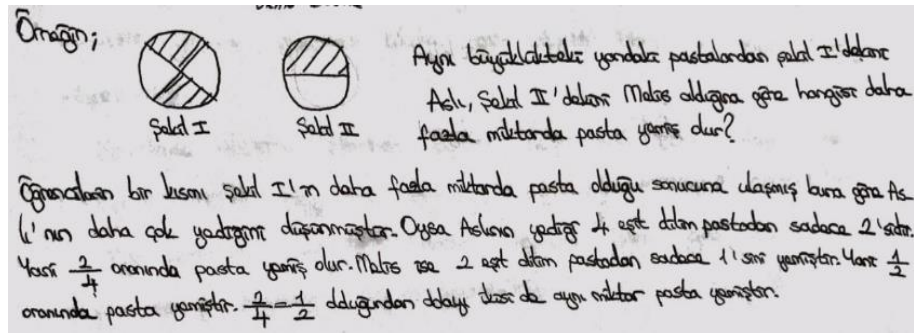 Örneğin;
Şekil I Şekil II
Aynı büyüklükteki yandaki pastalardan şekil I'dekini
Aslı, Şekil II'dekini Melis aldığına göre hangisi daha
fazla miktarda pasta yemiş olur?
Öğrencilerin bir kısmı şekil I'in daha fazla miktarda pasta olduğu sonucuna ulaşmış buna göre As-
lı'nın daha çok yediğini düşünmüştür. Oysa Aslının yediği 4 eşit dilim pastadan sadece 2'sidir.
Yani 2/4 oranında pasta yemiş olur. Melis ise 2 eşit dilim pastadan sadece 1'sini yemiştir. Yani 1/2
oranında pasta yemiştir. 2/4 = 1/2 olduğundan dolayı ikisi de aynı miktar pasta yemiştir.